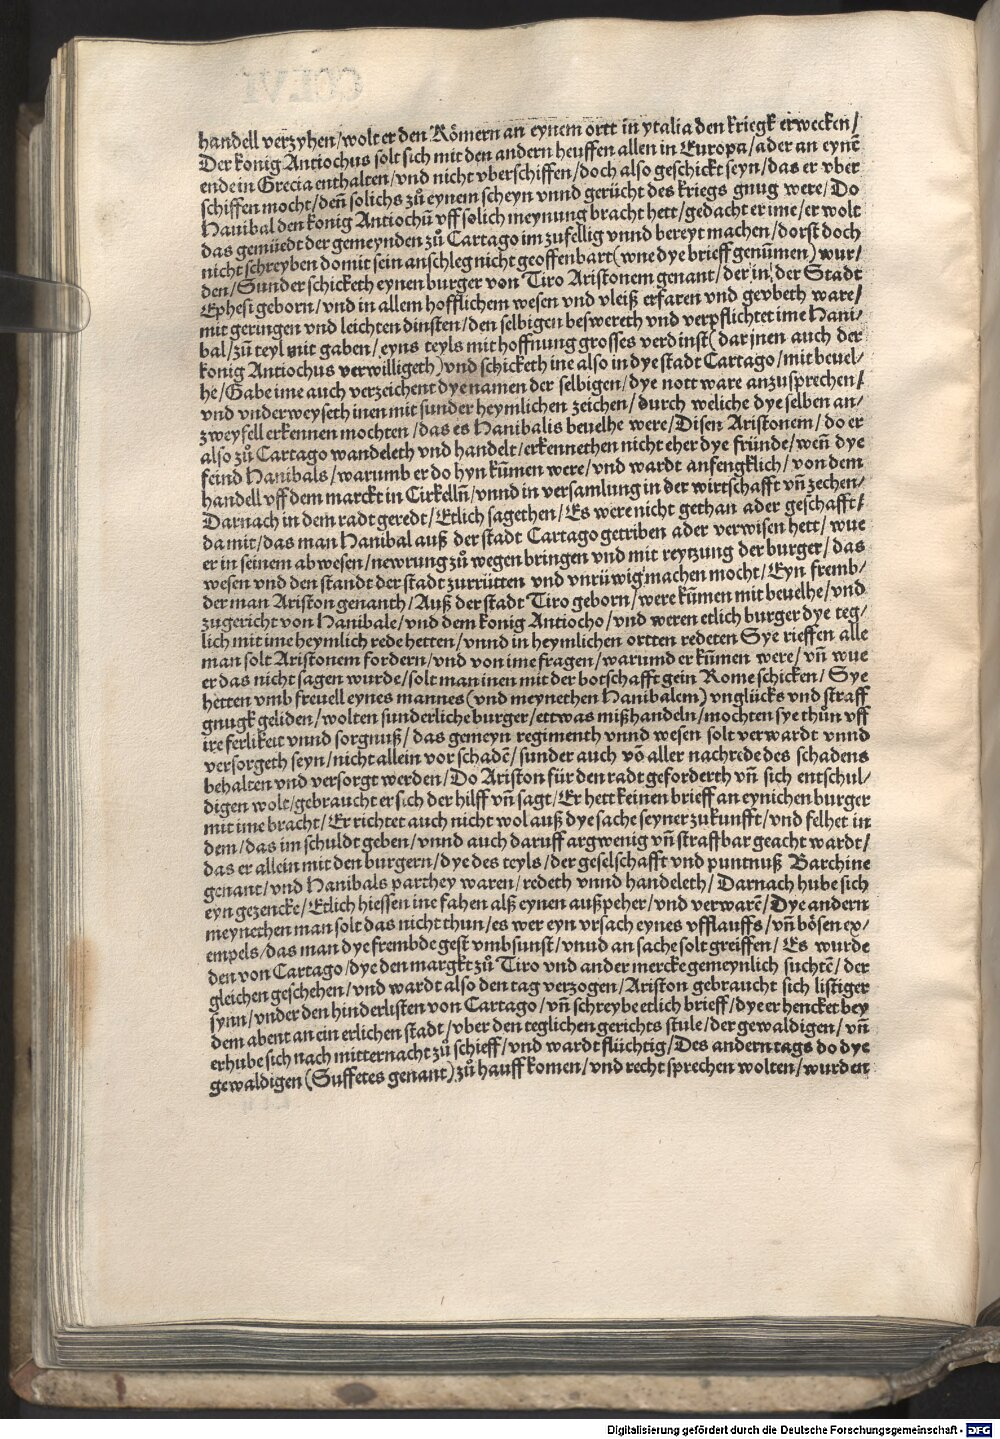 handell verzyhen/wolt er den Römern an eynem ortt in ytalia den kriegk erwecken/
Der könig Antiochus solt sich mit den andern heuffen allen in Europa/ader an eynẽ
ende in Grecia enthalten/vnd nicht vberschiffen/doch also geschickt seyn/das er vber
schiffen mocht/deñ solichs zů eynem scheyn vnnd gerücht des kriegs gnug were/Do
Hanibal den konig Antiochũ vff solich meynung bracht hett/gedacht er ime/er wolt
das gemüedt der gemeynden zů Cartago im zufellig vnnd bereyt machen/dorst doch
nicht schreyben domit sein anschleg nicht geoffenbart(wne dye brieff genũmen)wur/
den/Sunder schicketh eynen burger von Tiro Aristonem genant/der in der Stadt
Ephesi geborn/vnd in allem hofflichem wesen vnd vleiß erfaren vnd gevbeth ware/
mit geringen vnd leichten dinsten/den selbigen beswereth vnd verpflichtet ime Hani-
bal/zũ teyl mit gaben/eyns teyls mit hoffnung grosses verdinst(darjnen auch der
konig Antiochus verwilligeth)vnd schicketh ine also in dye stadt Cartago/mit beuel-
he/Gabe ime auch verzeichent dye namen der selbigen/dye nott ware anzusprechen/
vnd vnderweyseth inen mit sunder heymlichen zeichen/durch weliche dye selben an-
zweyfell erkennen mochten/das es Hanibalis beuelhe were/Disen Aristonem/do er
also zů Cartago wandeleth vnd handelt/erkennethen nicht eher dye fründe/weñ dye
feind Hanibals/warumb er do hyn kũmen were/vnd wardt anfengklich/von dem
handell vff dem marckt in Cirkelln̄/vnnd in versamlung in der wirtschafft vñ zechen/
Darnach in dem radt geredt/Etlich sagethen/Es were nicht gethan ader geschafft/
damit/das man Hanibal auß der stadt Cartago getriben ader verwisen hett/wue
er in seinem abwesen/newrung zů wegen bringen vnd mit reytzung der burger/das
wesen vnd den standt der stadt zurrütten vnd vnrüwig machen mocht/Eyn fremb/
der man Ariston genanth/Auß der stadt Tiro geborn/were kũmen mit beuelhe/vnd
zugericht von Hanibale/vnd dem konig Antiocho/vnd weren etlich burger dye teg/
lich mit ime heymlich rede hetten/vnnd in heymlichen ortten redeten Sye rieffen alle
man solt Aristonem fordern/vnd von ime fragen/warumd er kũmen were/vñ wue
er das nicht sagen wurde/solt man inen mit der botschafft gein Rome schicken/Sye
hetten vmb freuell eynes mannes(vnd meynethen Hanibalem)vnglücks vnd straff
gnugk geliden/wolten sunderliche burger/ettwas mißhandeln/mochten sye thůn vff
ire ferlikeit vnnd sorgnuß/das gemeyn regimenth vnnd wesen solt verwardt vnnd
versorgeth seyn/nicht allein vor schadẽ/sunder auch võ aller nachrede des schadens
behalten vnd versorgt werden/Do Ariston für den radt geforderth vñ sich entschul/
digen wolt/gebraucht er sich der hilff vñ sagt/Er hett keinen brieff an eynichen burger
mit ime bracht/Er richtet auch nicht wol auß dye sache seyner zukunfft/vnd felhet in
dem/das im schuldt geben/vnnd auch daruff argwenig vñ straffbar geacht wardt/
das er allein mit den burgern/dye des teyls/der geselschafft vnd puntnuß Barchine
genant/vnd Hanibals parthey waren/redeth vnnd handeleth/Darnach hube sich
eyn gezencke/Etlich hiessen ine fahen alß eynen außpeher/vnd verwarẽ/Dye andern
meynethen man solt das nicht thun/es wer eyn vrsach eynes vfflauffs/vñ bösen ex/
empels/das man dye frembde gest vmbsunst/vnud an sache solt greiffen/Es wurde
den von Cartago/dye den margkt zů Tiro vnd ander mercke gemeynlich suchtẽ/der
gleichen geschehen/vnd wardt also den tag verzogen/Ariston gebraucht sich listiger
synn/vnder den hinderlisten von Cartago/vñ schreybe etlich brieff/dye er hencket bey
dem abent an ein erlichen stadt/vber den teglichen gerichts stule/der gewaldigen/vñ
erhube sich nach mitternacht zů schieff/vnd wardt flüchtig/Des andern tags do dye
gewaldigen(Suffetes genant)zů hauff komen/vnd recht sprechen wolten/wurden
Digitalisierung gefördert durch die Deutsche Forschungsgemeinschaft - DFG